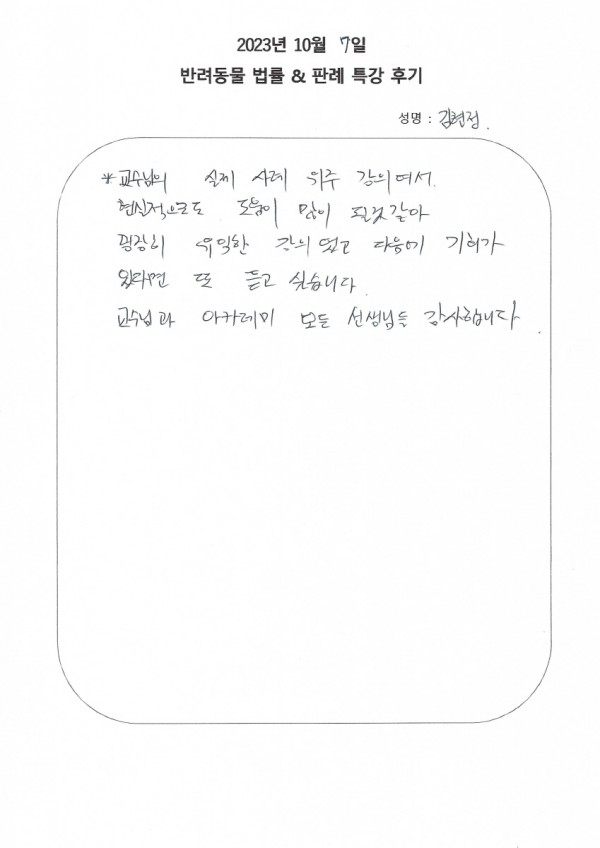 2023년 10월 7일
반려동물 법률 & 판례 특강 후기
성명 : 김현정.
*교수님의 실제 사례 위주 강의여서.
현실적으로도 도움이 많이 될것같아
굉장히 유익한 강의였고 다음에 기회가
있다면 또 듣고 싶습니다.
교수님과 아카데미 모든 선생님들 감사합니다.